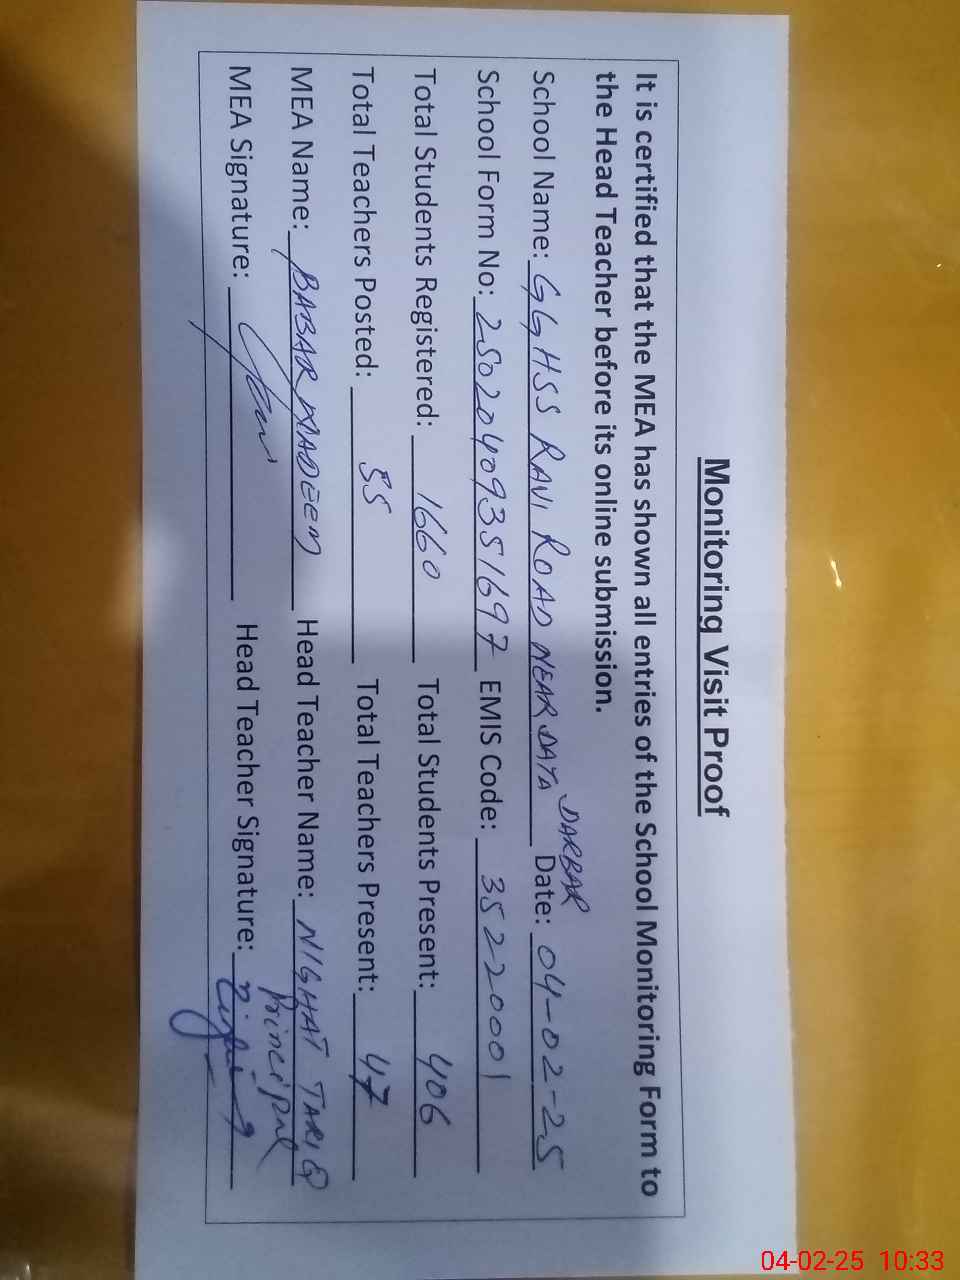 Monitoring Visit Proof
It is certified that the MEA has shown all entries of the School Monitoring Form to
the Head Teacher before its online submission.
School Name: GGHSS RAVI ROAD NEAR DATA DARBAR Date: 04-02-25
School Form No: 25020409351697 EMIS Code: 35220001
Total Students Registered: 1660 Total Students Present: 406
Total Teachers Posted: 55 Total Teachers Present: 47
MEA Name: BABAR NADEEM Head Teacher Name: NIGHAT TARIQ
Principal
MEA Signature: Head Teacher Signature:
04-02-25 10:33